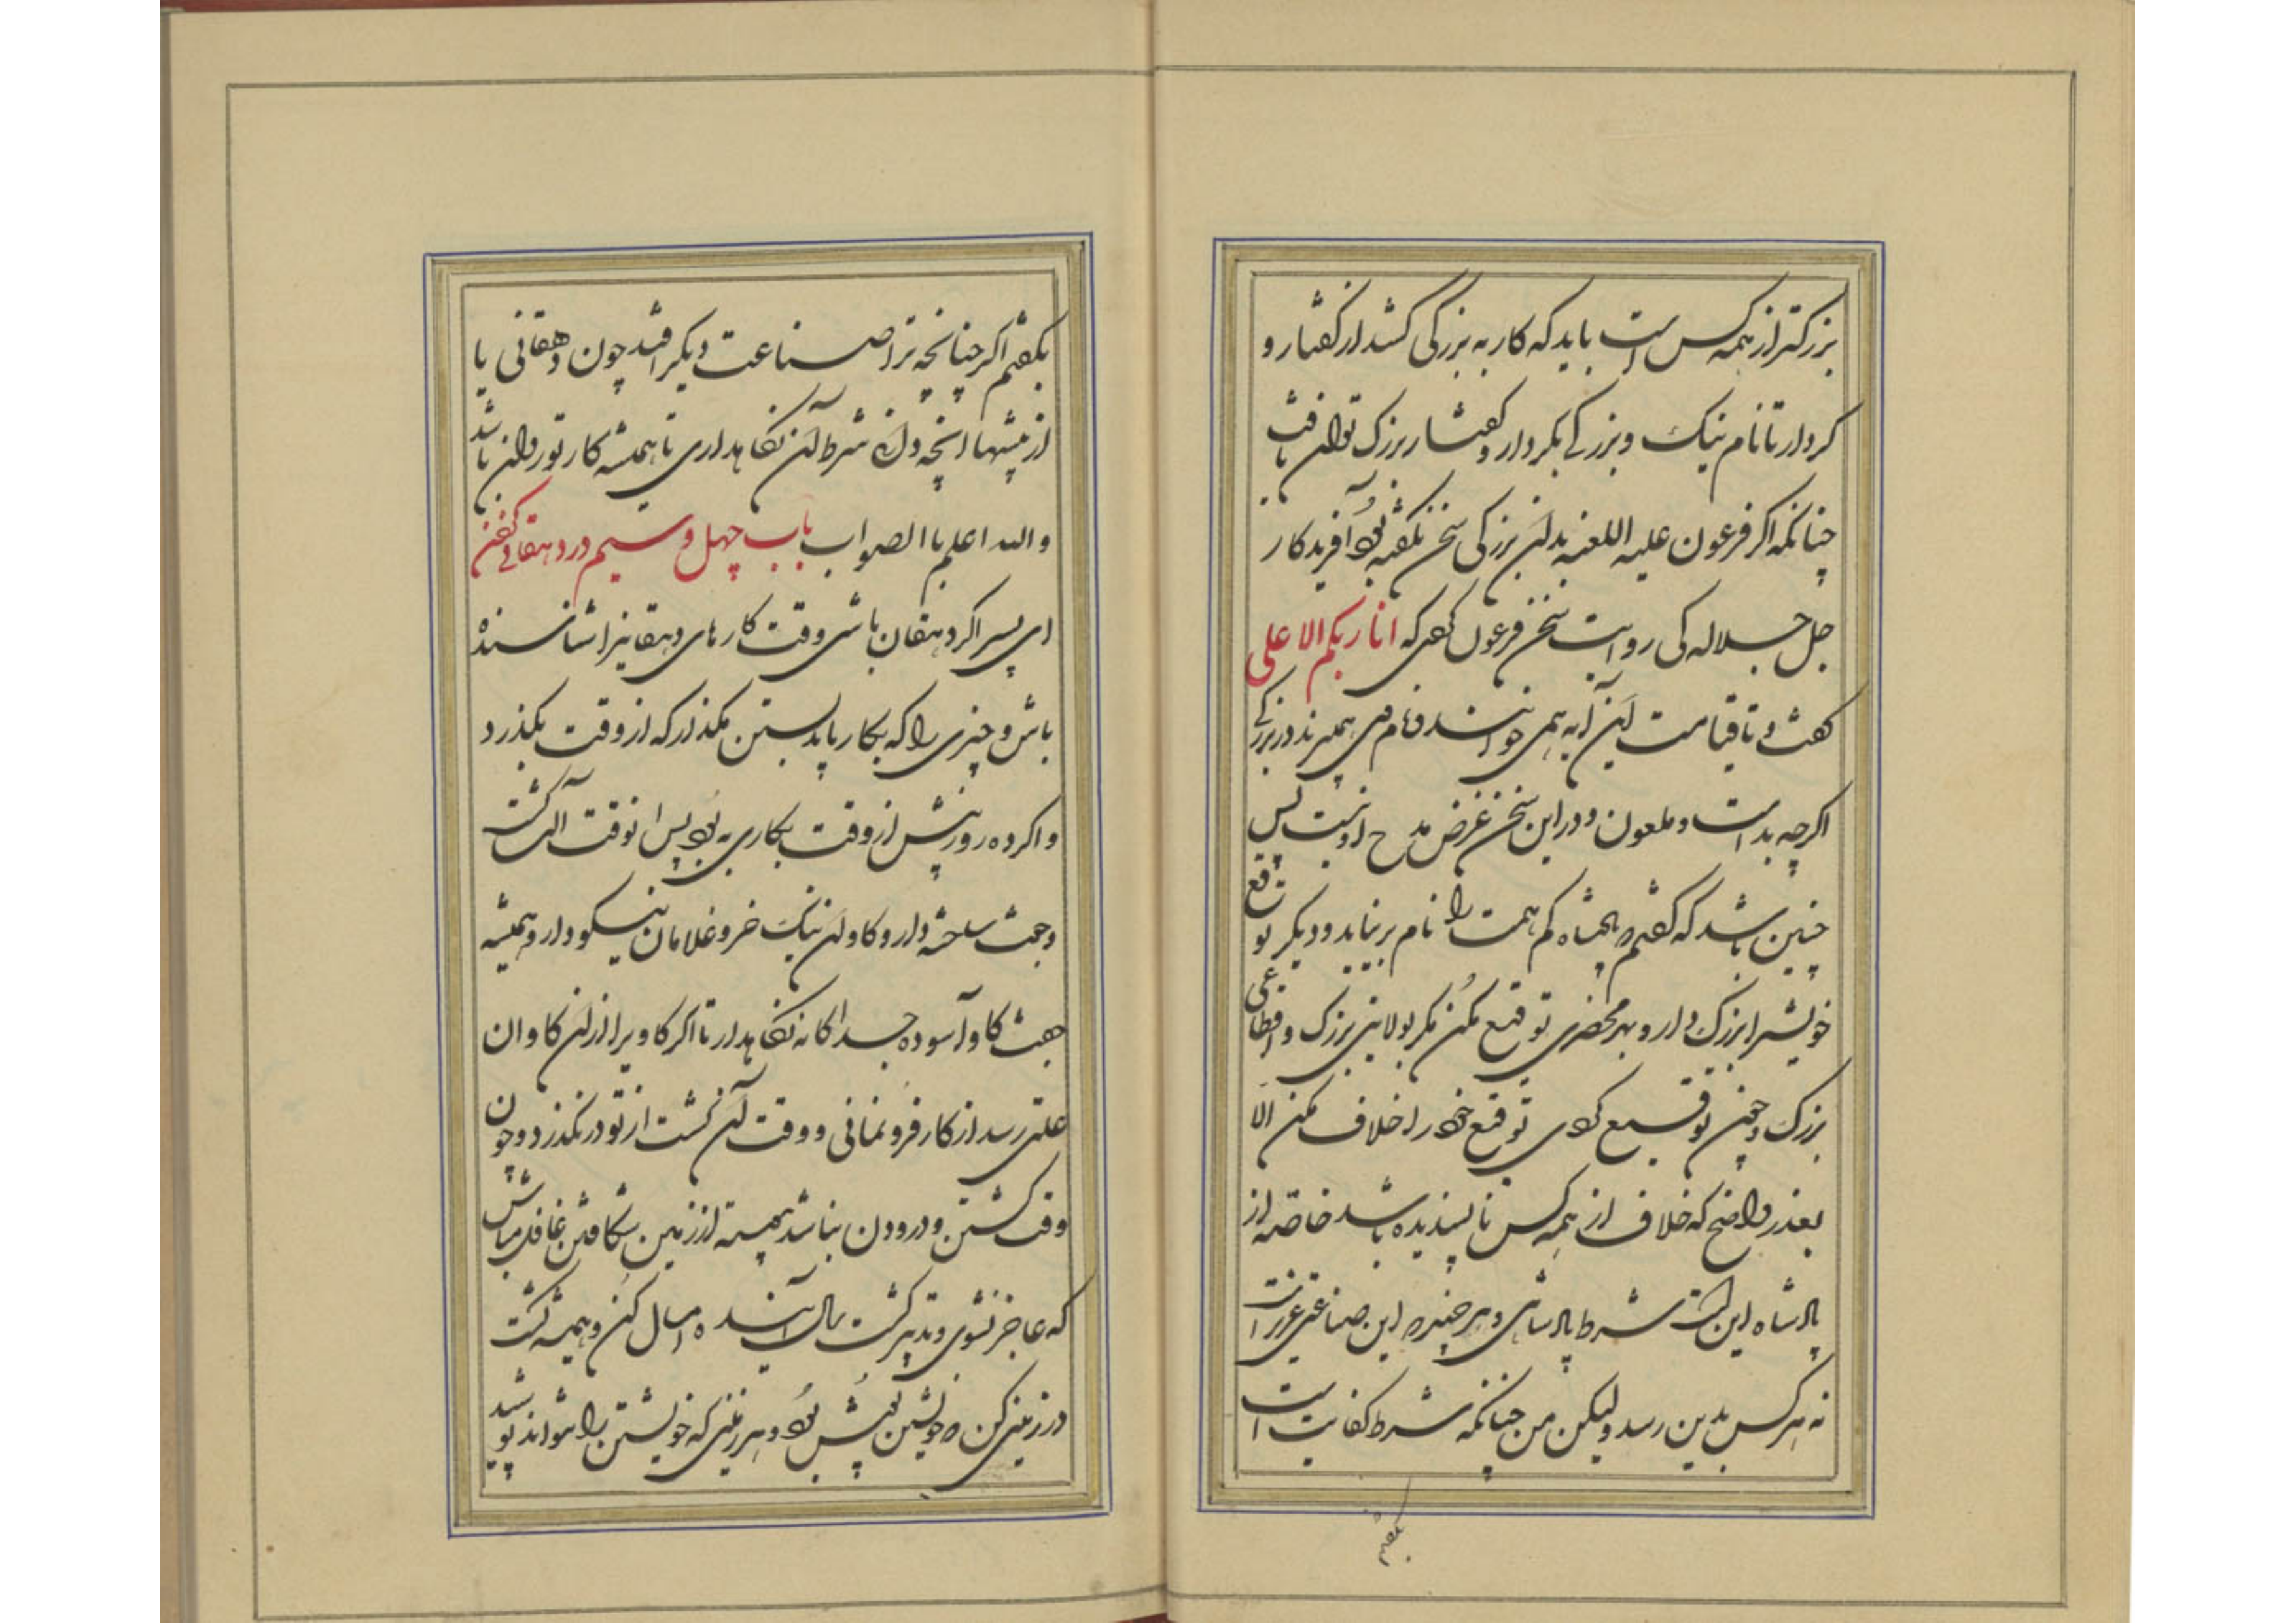 بزرکتر از همه کس است باید که کار به بزرکی کشد از کفتار و
کردار تا نام نیک و بزرکی بکردار و کفتار بزرک توان یافت
چنانکه اکر فرعون علیه اللعنه بدان بزرکی سخن نکفته بودی آفریدکار
جل جلاله کی روایت سخن فرعون کردی که انا ربکم الاعلی
کفت و تا قیامت این آیه همی خوانند و نام وی همی برند در بزرکی
اکرچه بد است و ملعون و در این سخن غرض مدح او نیست پس
چنین باشد که کفتم پادشاه کم همت را نام بر نیاید و دیکر توقیع
خویش را بزرک دار و بهر محضری توقیع مکن مکر بولایتی بزرک و اقطاعی
بزرک و چون توقیع کردی توقیع خود را خلاف مکن الا
بعذر واضح که خلاف از همه کس ناپسندیده باشد خاصه از
پادشاه این است شرط پادشاهی و هر چند این صناعتی عزیز است
نه هر کس بدین رسد ولیکن من چنانکه شرط کفایت است
بکفتم
بکفتم اکر چنانچه ترا صناعت دیکر افتد چون دهقانی یا
از پیشها انچه دانی شرط آن نکاهداری تا همیشه کار تو روان باشد
والله اعلم باالصواب باب چهل و سیم در دهقانی کفتن
ای پسر اکر دهقان باشی وقت کارهای دهقانیرا شناسنده
باش و چیزی را که بکار باید بستن مکذار که از وقت بکذرد
و اکر ده روز پیش از وقت بکاری به بود پس از وقت آلت کشت
و جفت ساخته دار و کاوان نیک خر و غلامان نیکو دار و همیشه
جفت کاو آسوده جداکانه نکاهدار تا اکر کاویرا از آن کاوان
علتی رسد از کار فرو نمانی و وقت آن کشت از تو در نکذرد و چون
وقت کشتن و درودن نباشد پیوسته از زمین شکافتن غافل مباش
که عاجز نشوی و تدبیر کشت سال آینده امسال کن و همیشه کشت
در زمینی کن که خویشتن پوش بود و هر زمینی که خویشتن را نتواند پوشید